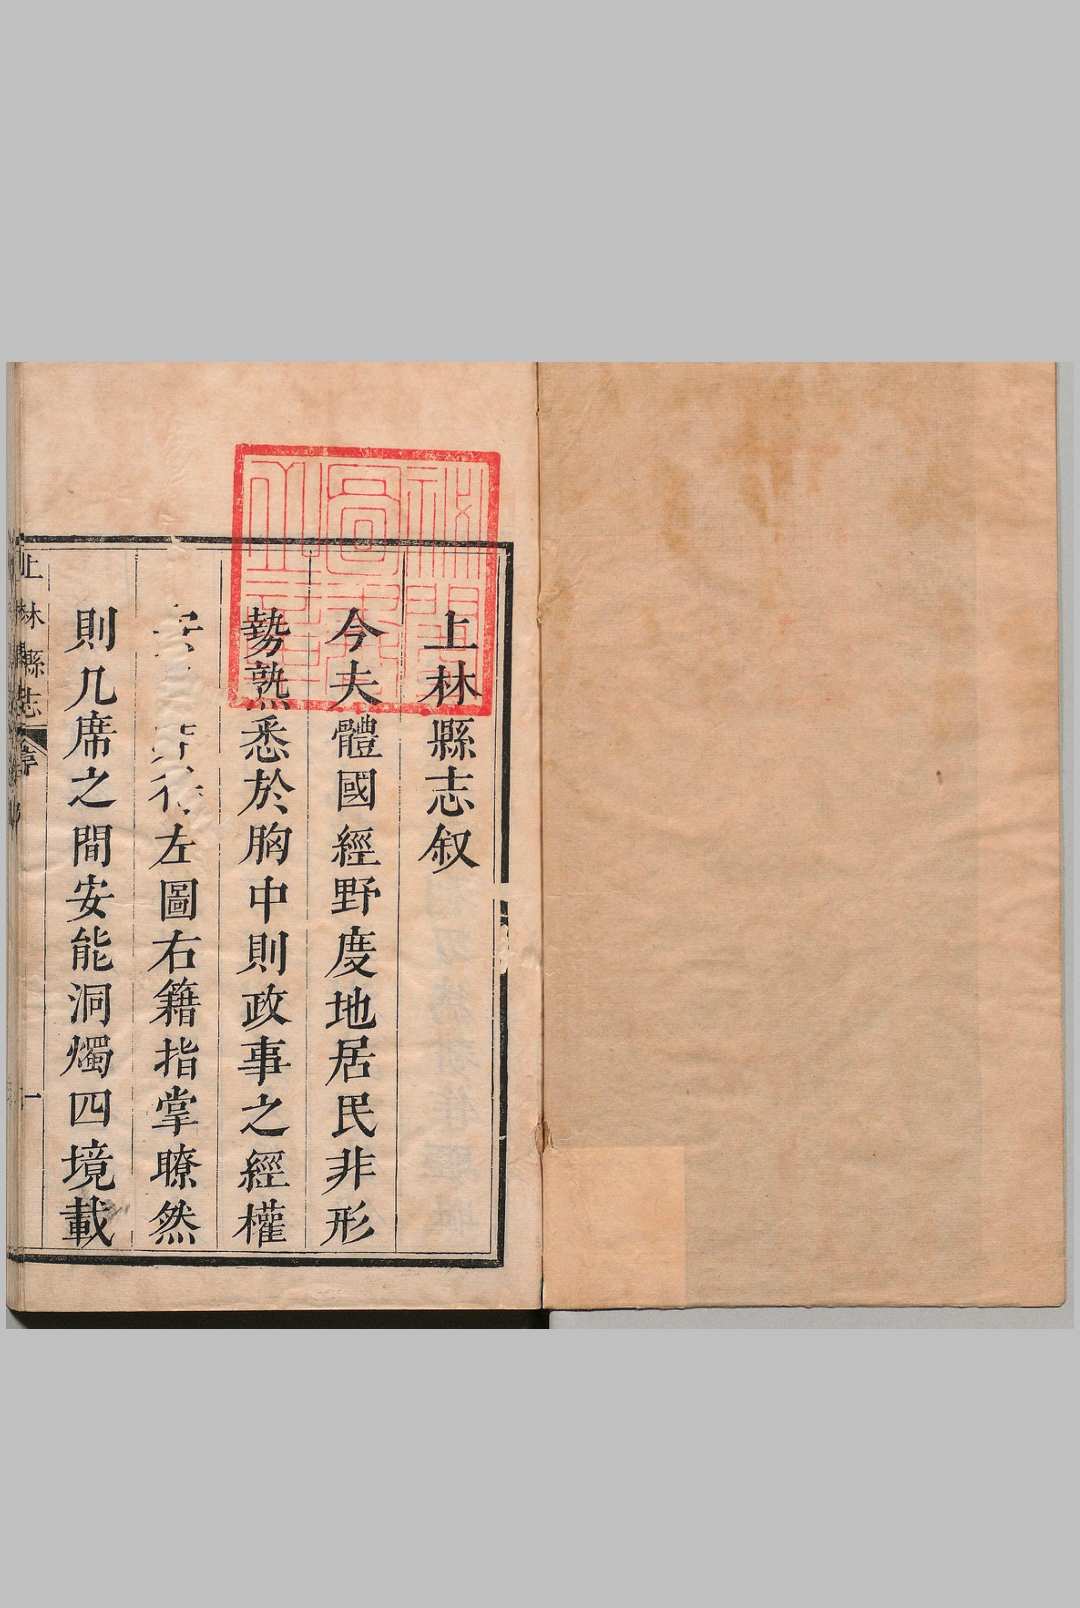 上林縣志叙
今夫體國經野度地居民非形
勢熟悉於胸中則政事之經權
左圖右籍指掌瞭然
則几席之間安能洞燭四境載
上林縣志
序
一